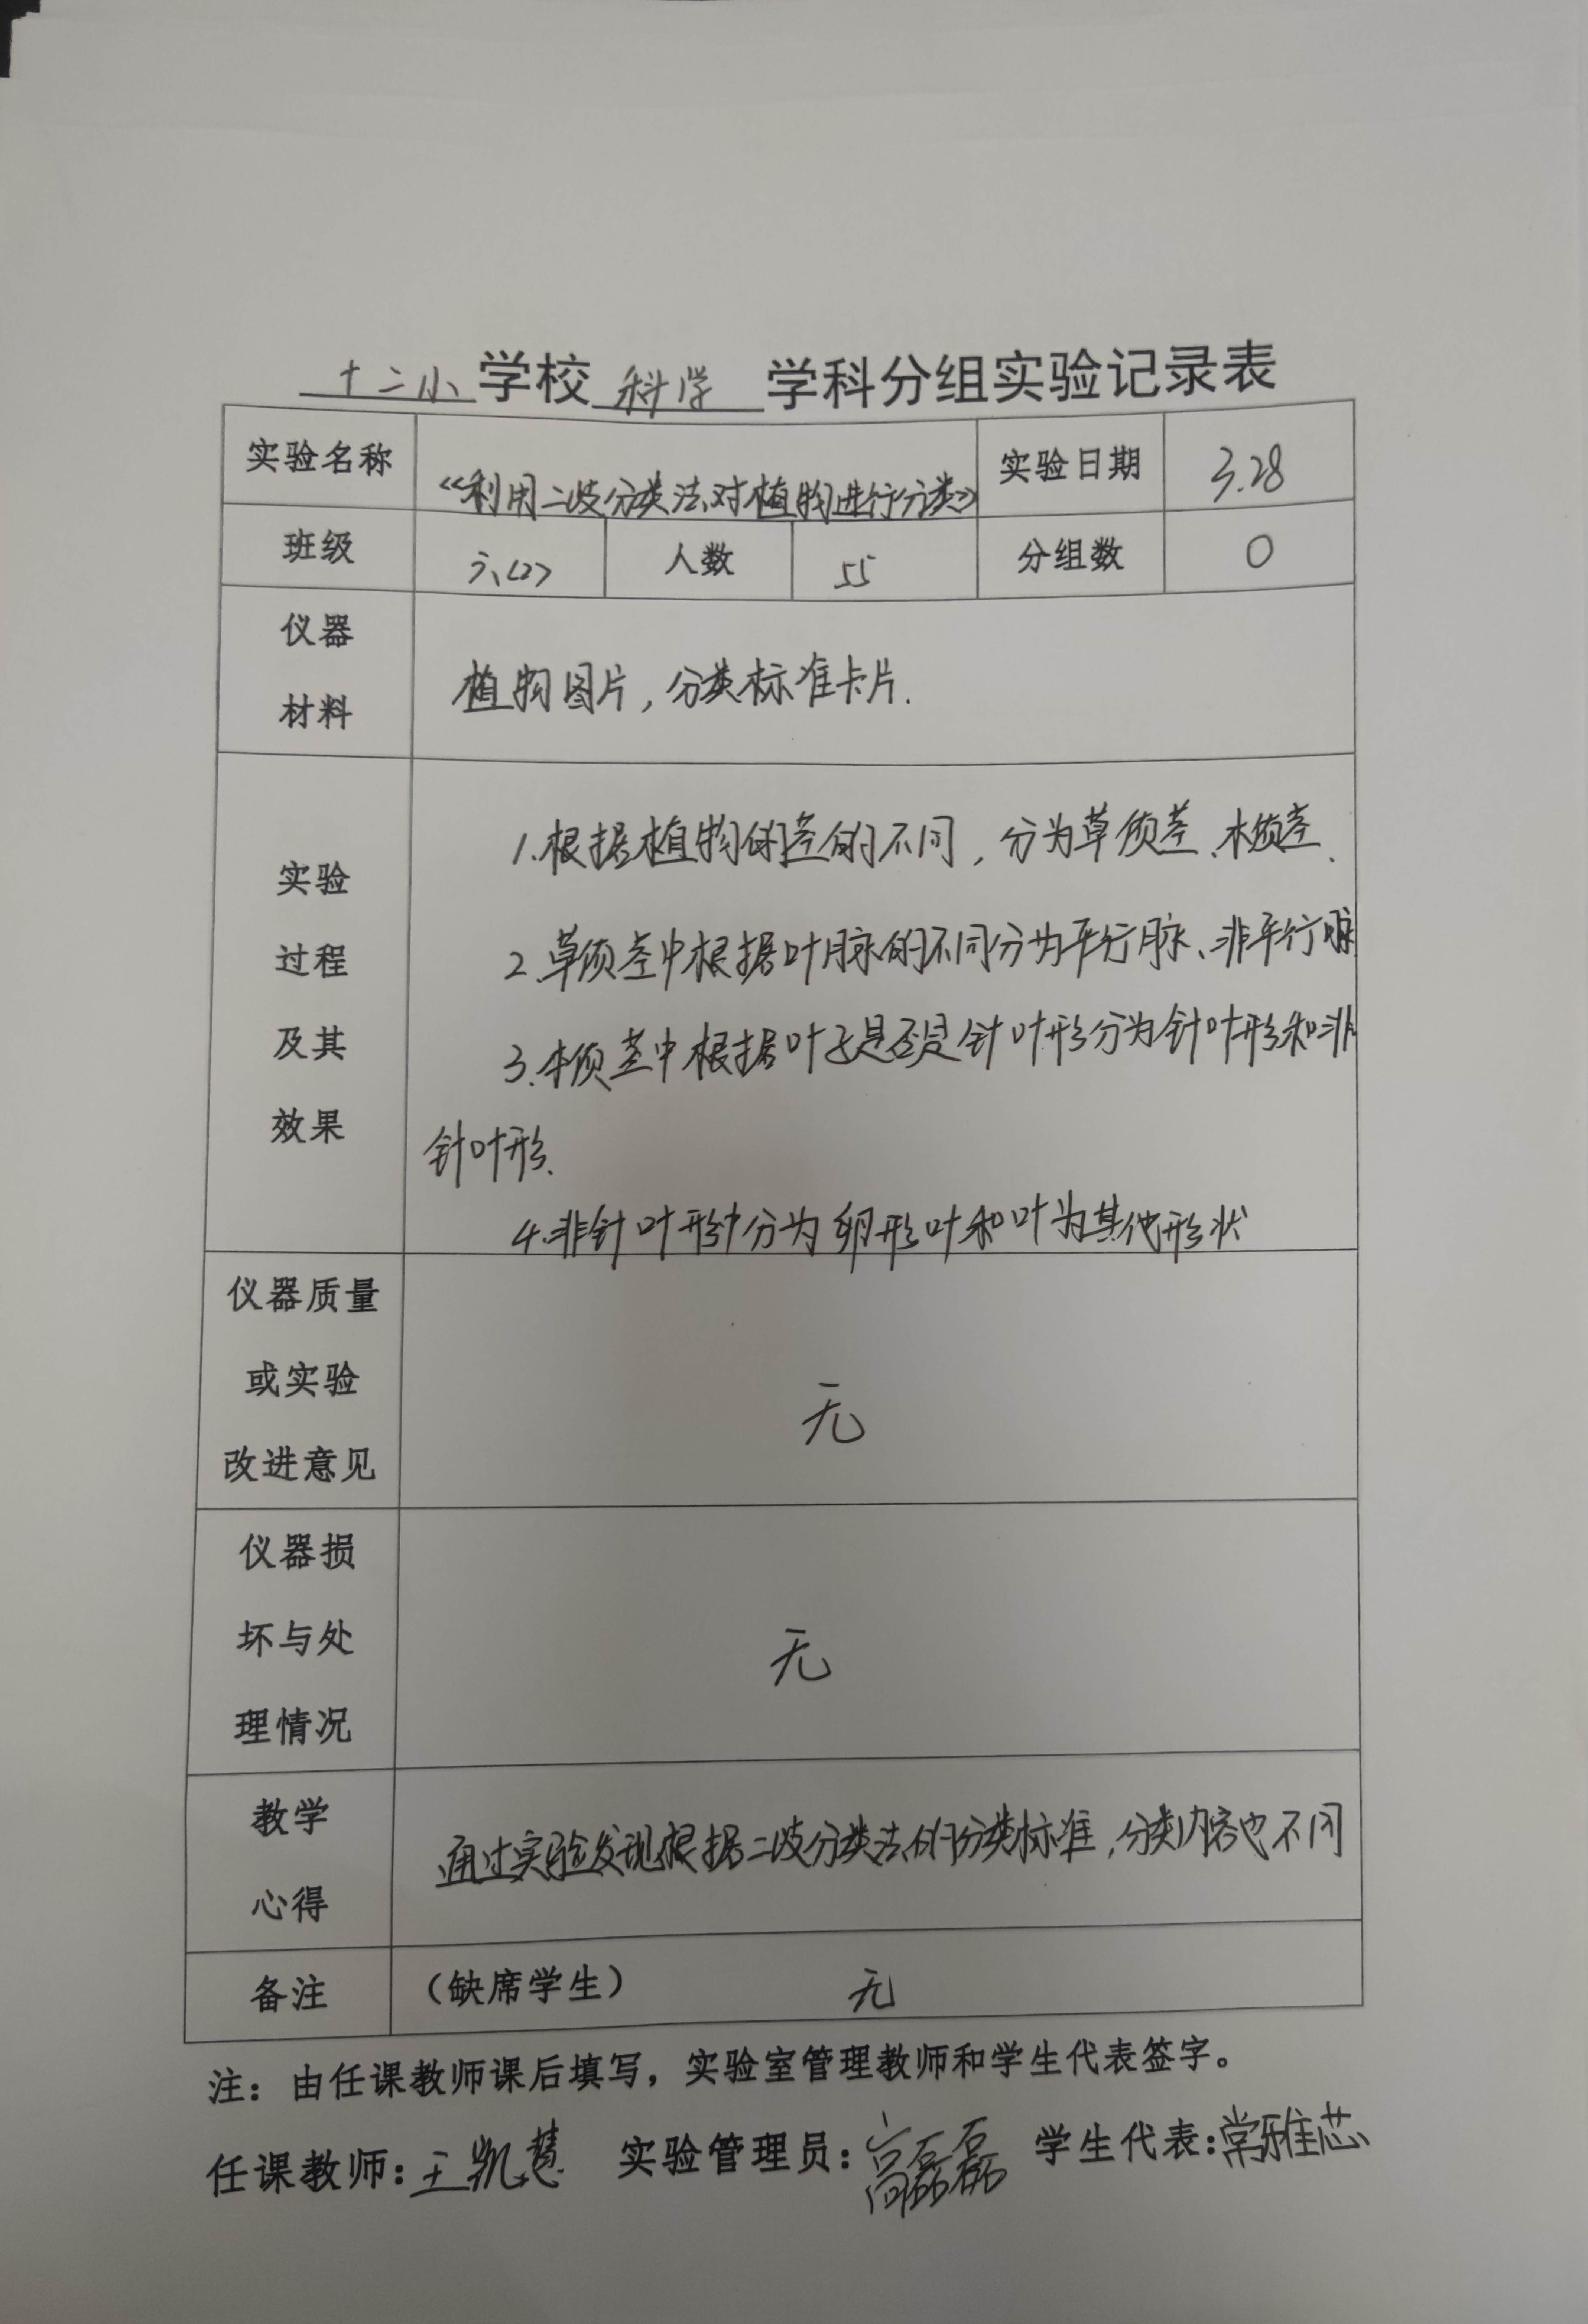 十二小学校 科学 学科分组实验记录表
实验名称 《利用二歧分类法对植物进行分类》 实验日期 3.28
班级 六<2> 人数 55 分组数 0
仪器
材料
植物图片,分类标准卡片.
实验
过程
及其
效果
1.根据植物的茎的不同,分为草质茎、木质茎、
2.草质茎中根据叶脉的不同分为平行脉、非平行脉
3.木质茎中根据叶子是否是针叶形分为针叶形和非
针叶形.
4.非针叶形中分为卵形叶和叶为其他形状
仪器质量
或实验
改进意见
无
仪器损
坏与处
理情况
无
教学
心得
通过实验发现根据二歧分类法的分类标准,分类内容也不同
备注 (缺席学生) 无
注:由任课教师课后填写,实验室管理教师和学生代表签字。
任课教师:王凯慧 实验管理员:高磊磊 学生代表:常雅芯